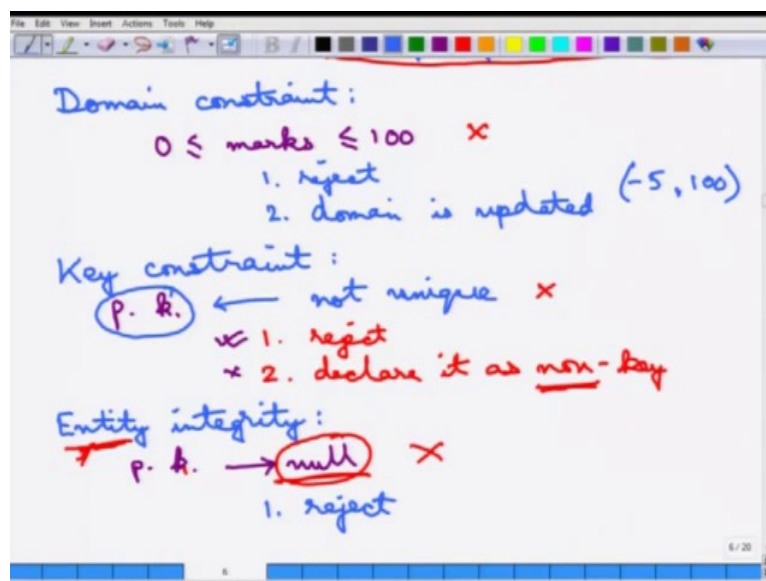 File Edit View Insert Actions Tools Help
Domain constraint:
0 ≤ marks ≤ 100 ×
1. reject
2. domain is updated (-5, 100)
Key constraint:
p. k. ← not unique ×
1. reject
× 2. declare it as non-key
Entity integrity:
p. k. → null ×
1. reject
6/20
6